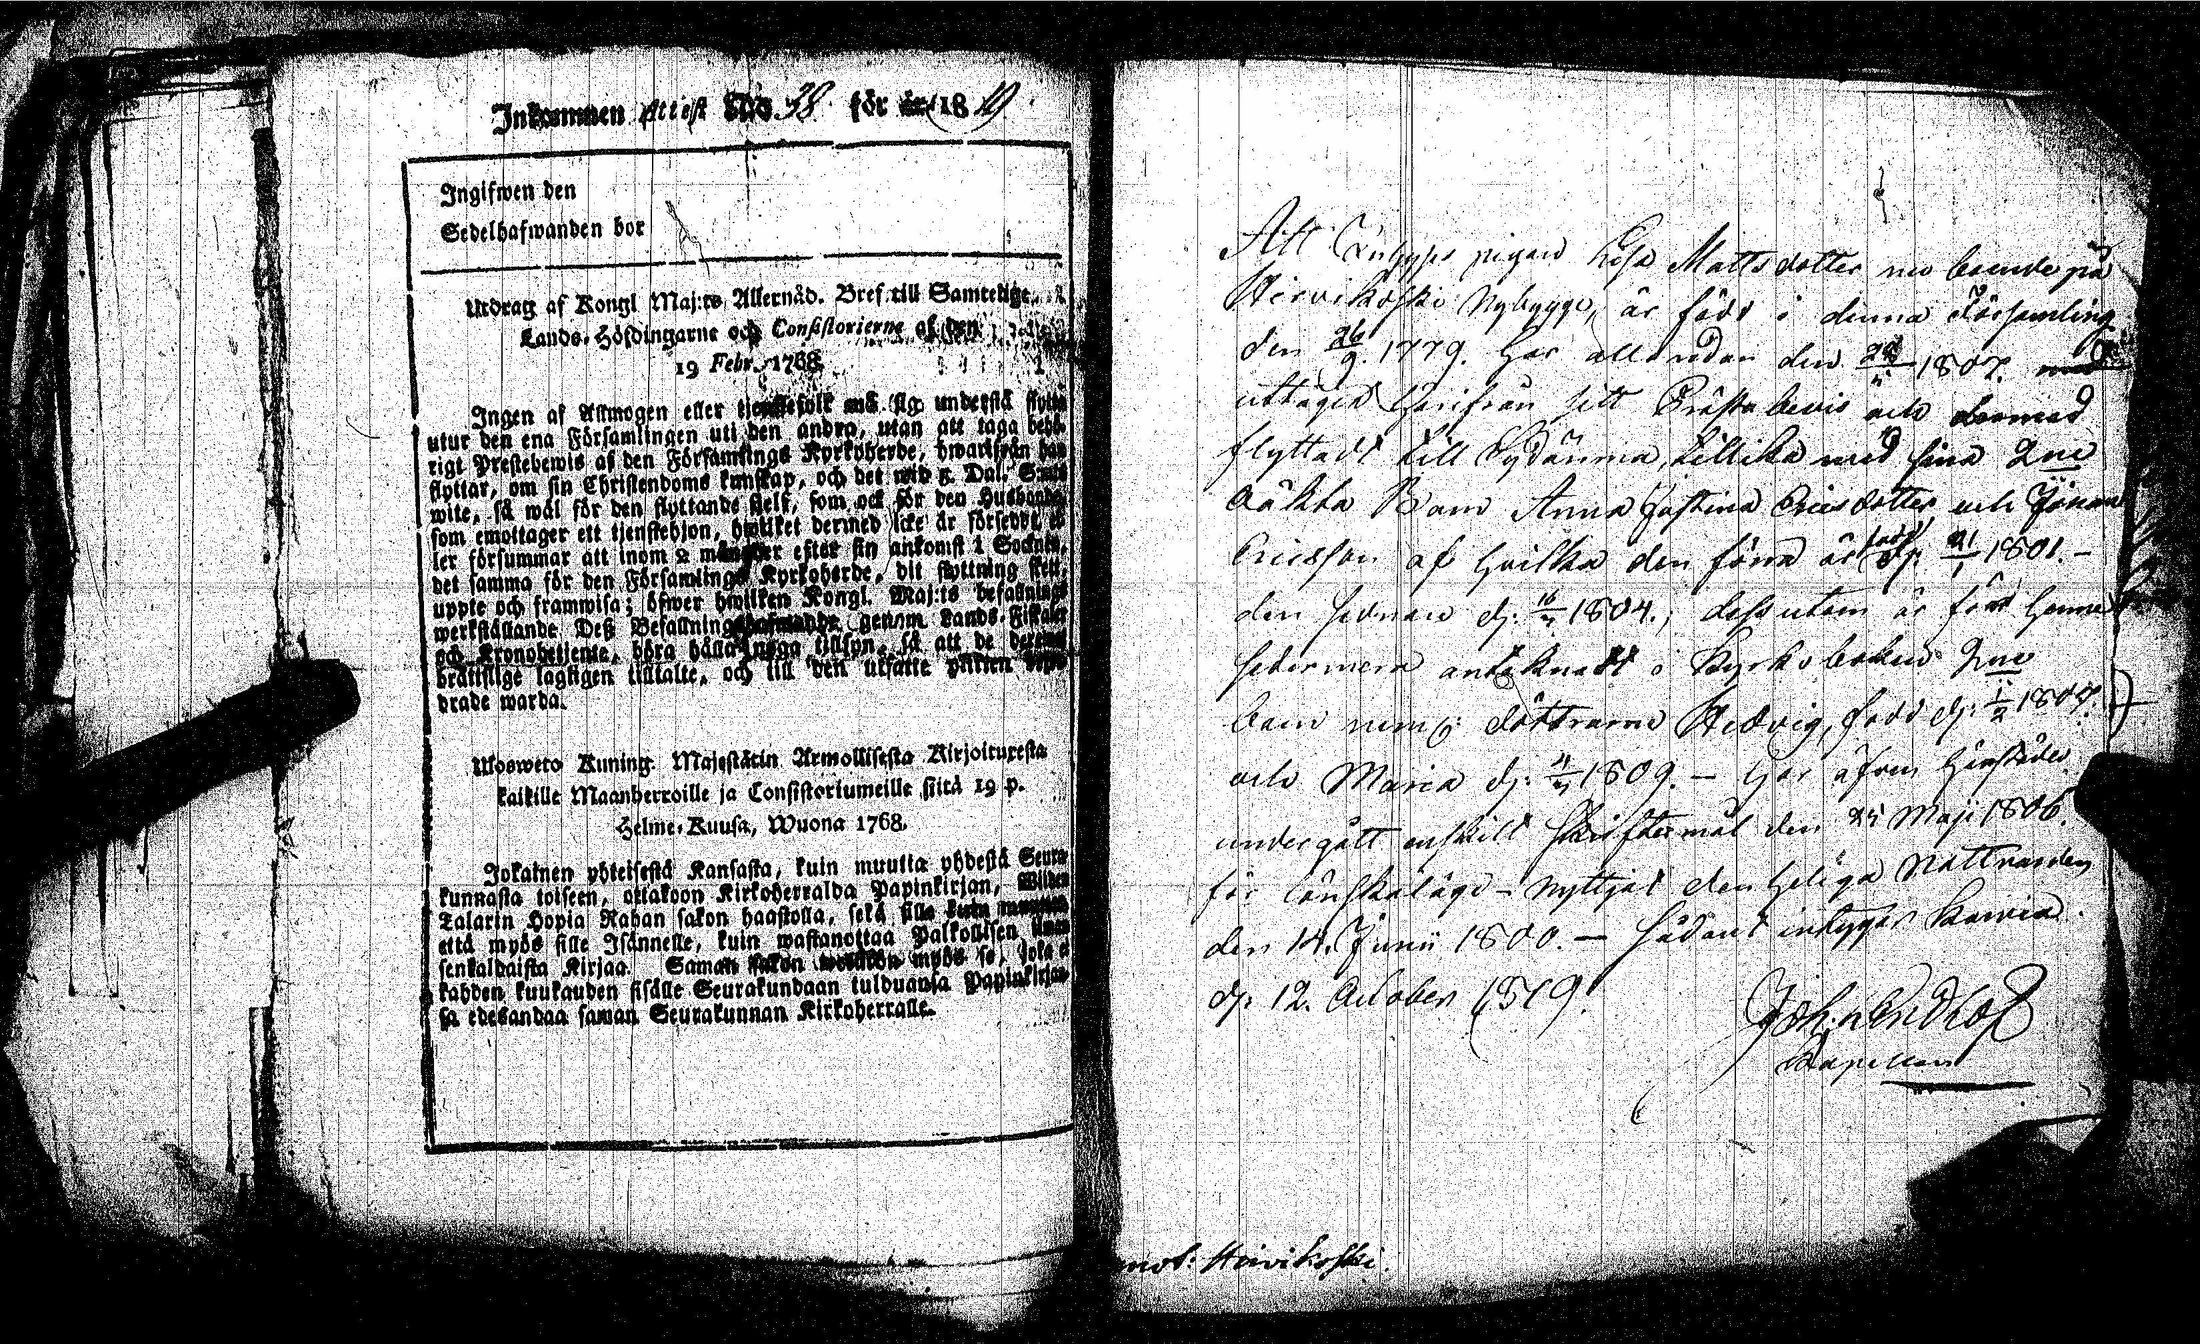 Inkommen Attest No 38. för år 1819
Ingifwen den
Sedelhafwanden bor
Utdrag af Kongl Maj:ts Allernåd. Bref till Samtelige
Lands-Höfdingarne och Consistorierne af den
19 Febr. 1768.
Ingen af Allmogen eller tjenstefolk må sig understå flytta
utur den ena Församlingen uti den andra, utan att taga behö-
rigt Prestebewis af den Församlings Kyrkoherde, hwarifrån han
flyttar, om sin Christendoms kunskap, och det wid 5 Dal. S:mts
wite, så wäl för den flyttande sielf, som ock för den Husbonde,
som emottager ett tjenstehjon, hwilket dermed icke är försedt, el-
ler försummar att inom 2 månader efter sin ankomst i Socknen,
det samma för den Församlings Kyrkoherde, dit flyttning skett,
uppte och framwisa; öfwer hwilken Kongl. Maj:ts befallnings
werkställande Deß Befallningshafwande genom Lands-Fiskaler
och Kronobetjente, böra hålla noga tillsyn, så att de dermed
brätslige lagligen tilltalte, och till den utsatte plikten befor-
drade warda.
Ulosweto Kuning. Majestätin Armollisesta Kirjoituresta
kaikille Maanherroille ja Consistoriumeille siitä 19 p.
Helme-Kuusa, Wuona 1768.
Jokainen yhteisestä Kansasta, kuin muutta yhdestä Seura-
kunnasta toiseen, ottakoon Kirkoherralda Papinkirjan, Wiiden
Talarin Hopia Rahan sakon haastolla, sekä sille kuin muuttaa
että myös sille Isännelle, kuin wastanottaa Palkollisen ilman
senkaldaista Kirjaa. Saman sakon wetäkön myös se, joka ei
kahden kuukauden sisälle Seurakundaan tulduansa Papinkirjan-
sa edesandaa saman Seurakunnan Kirkoherralle.
Att pigan Lisa Mattsdotter nu boende på
Hirvikoski Nybygge, är född i denna Församling
den 26/9 1779. har allaredan den 1807.
uttagit härifrån sitt Prästabevis och dermed
flyttadt till Sydänma, tillika med sina 2ne
oäkta Barn Anna Justina Ericsdotter och Johan
Ericsson af hvilka den förra är född dj: 21/1 1801. –
den sednare dj: 1804.; dessutom är för henne
sedermera antecknadt i Kyrkoboken 2ne
barn neml: döttrarne Hedvig, född dj: 1/2 1807.
och Maria dj: 1809. – har äfven härstädes
undergått enskilt Skriftermål den 25 Maji 1806.
för lönskaläge – nyttjat den heliga Nattvarden
den 14. Junii 1800. – Sådant intygar
dj: 12. October 1819.
Joh:
Kapellan
Hirvikoski.